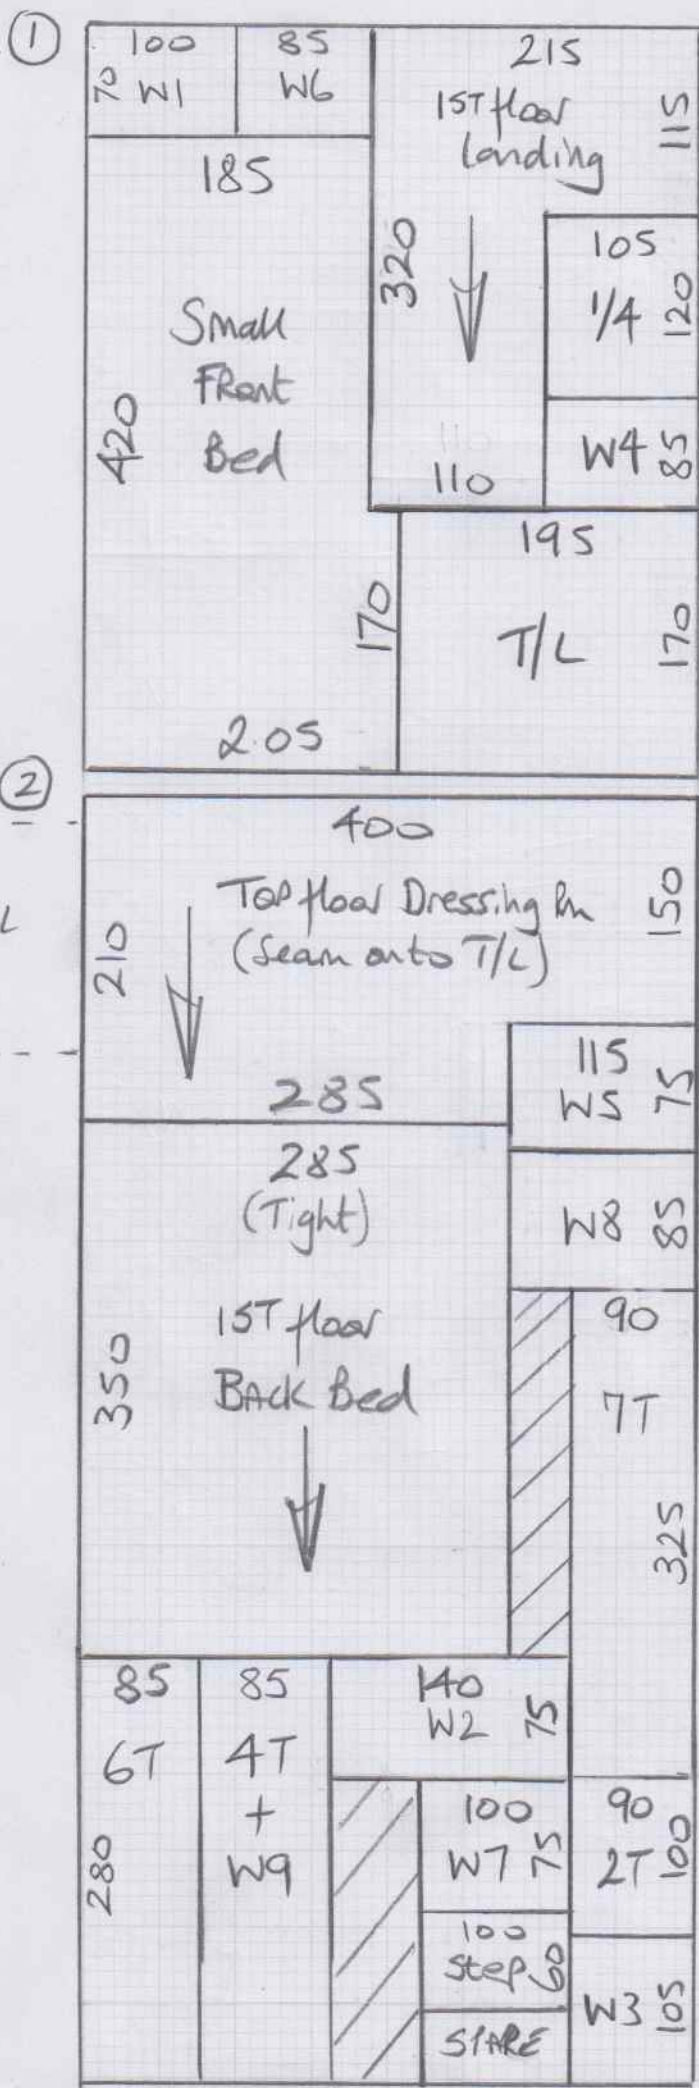 1
100
70 W1
85
W6
215
1ST floor
landing
115
185
320
105
1/4
120
Small
Front
Bed
420
W4 85
110
195
170
T/L
170
2.05
2
400
L
Top floor Dressing Rm
(Seam onto T/L)
150
210
115
W5 75
285
285
(Tight)
W8 85
1ST floor
BACK Bed
350
90
7T
325
85
6T
280
85
4T
+
W9
140
W2 75
100
W7 75
90
2T 100
100
Step 60
W3 105
SPARE